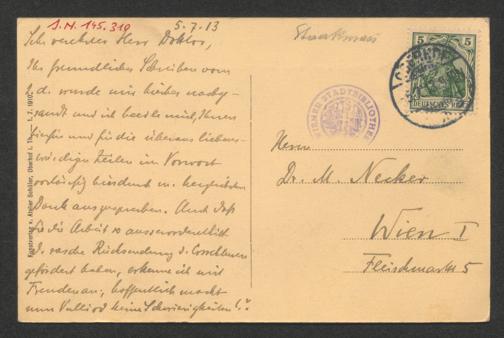 I.N. 145.310
5.7.13
Sehr verehrter Herr Doktor,
Ihr freundliches Schreiben vom
d. wurde mir hieher nachge-
sandt und ich beeile mich, Ihnen
hiefür und für die überaus liebens-
würdigen Zeilen im Vorwort
vorläufig hiedurch m. herzlichsten
Dank auszusprechen. Auch daß
Sie die Arbeit so ausserordentlich
d. rasche Rücksendung d. Correkturen
gefördert haben, erkenne ich mit
Freuden an; hoffentlich macht
nun keine Schwierigkeiten!
5 5
DEUTSCHES REICH
OBERHOF
WIENER STADTBIBLIOTHEK
Herrn
Dr. M. Necker
Wien I
Fleischmarkt 5